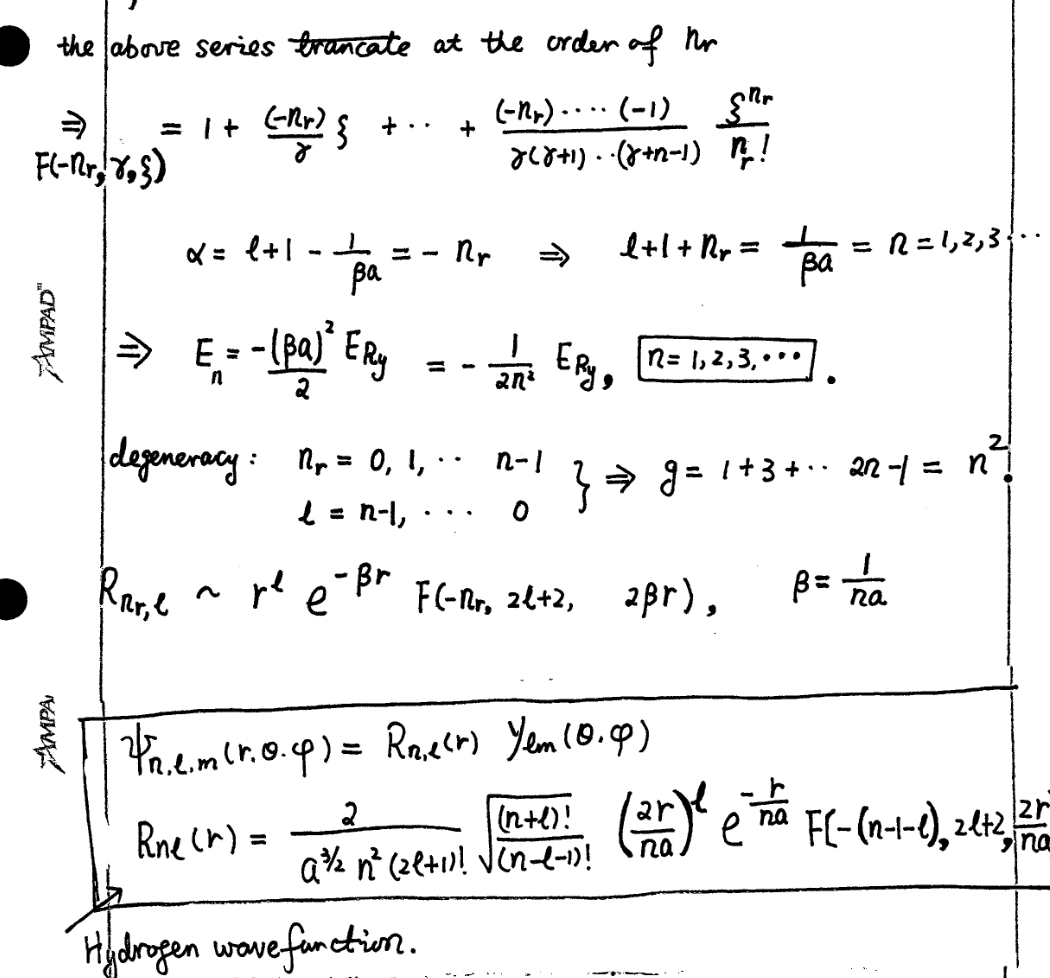 the above series truncate at the order of nr
⇒ F(-nr, γ, ξ) = 1 + (-nr)/γ ξ + ·· + (-nr)····(-1) / γ(γ+1)··(γ+n-1) ξ^nr / nr!
α = l+1 - 1/βa = - nr ⇒ l+1+nr = 1/βa = n = 1,2,3···
AMPAD™
⇒ En = -(βa)²/2 ERy = - 1/2n² ERy, n= 1,2,3,··· .
degeneracy: nr = 0, 1, ·· n-1 } ⇒ g = 1+3+·· 2n-1 = n².
l = n-1, ··· 0
Rnr,l ~ r^l e^-βr F(-nr, 2l+2, 2βr), β = 1/na
AMPA
Ψn.l.m(r.θ.φ) = Rn,l(r) Ylm(θ.φ)
Rnl(r) = 2 / a^3/2 n² (2l+1)! √(n+l)!/(n-l-1)! (2r/na)^l e^-r/na F(-(n-1-l), 2l+2, 2r/na
Hydrogen wavefunction.